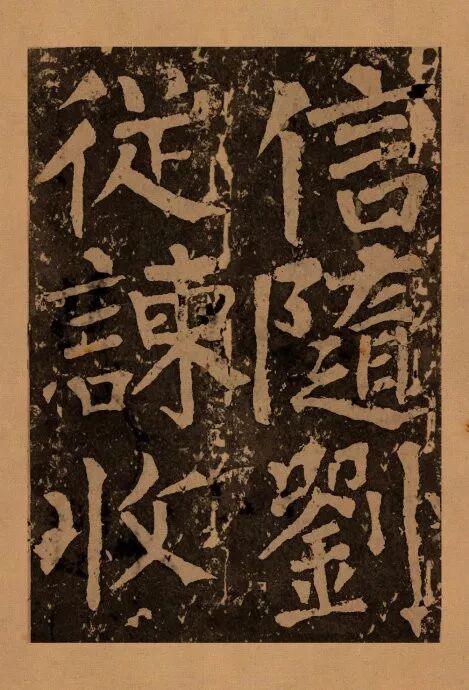 信隨劉
從諫收